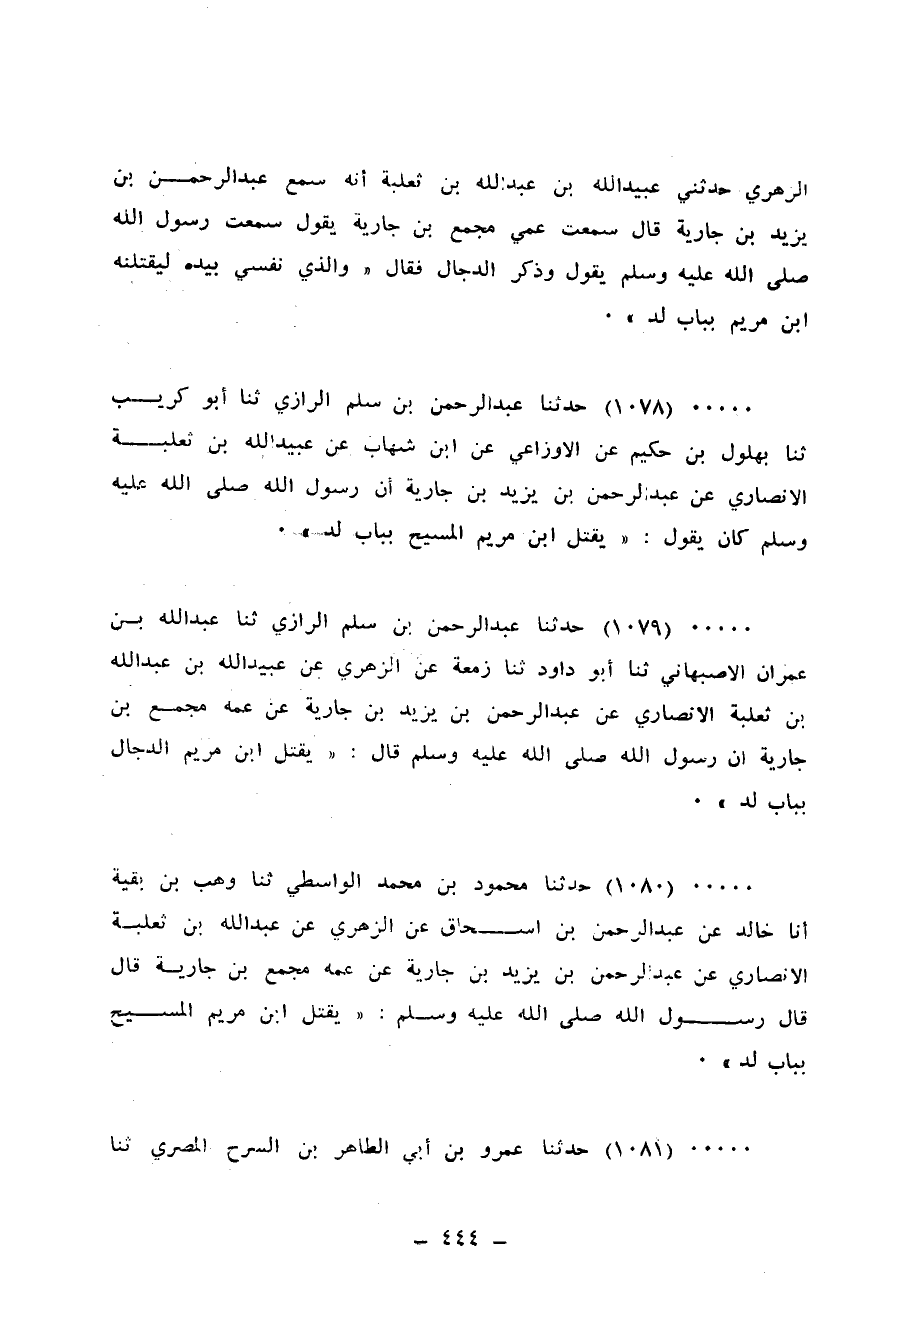 الزهري حدثني عبيدالله بن عبدالله بن ثعلبة أنه سمع عبدالرحمن بن
يزيد بن جارية قال سمعت عمي مجمع بن جارية يقول سمعت رسول الله
صلى الله عليه وسلم يقول وذكر الدجال فقال « والذي نفسي بيده ليقتلنه
ابن مريم بباب لد » ٠
٠٠٠٠٠ (١٠٧٨) حدثنا عبدالرحمن بن سلم الرازي ثنا أبو كريب
ثنا بهلول بن حكيم عن الاوزاعي عن ابن شهاب عن عبيدالله بن ثعلبة
الانصاري عن عبدالرحمن بن يزيد بن جارية أن رسول الله صلى الله عليه
وسلم كان يقول : « يقتل ابن مريم المسيح بباب لد » ٠
٠٠٠٠٠ (١٠٧٩) حدثنا عبدالرحمن بن سلم الرازي ثنا عبدالله بن
عمران الاصبهاني ثنا أبو داود ثنا زمعة عن الزهري عن عبيدالله بن عبدالله
بن ثعلبة الانصاري عن عبدالرحمن بن يزيد بن جارية عن عمه مجمع بن
جارية ان رسول الله صلى الله عليه وسلم قال : « يقتل ابن مريم الدجال
بباب لد » ٠
٠٠٠٠٠ (١٠٨٠) حدثنا محمود بن محمد الواسطي ثنا وهب بن بقية
أنا خالد عن عبدالرحمن بن اسحاق عن الزهري عن عبدالله بن ثعلبة
الانصاري عن عبدالرحمن بن يزيد بن جارية عن عمه مجمع بن جارية قال
قال رسول الله صلى الله عليه وسلم : « يقتل ابن مريم المسيح
بباب لد » ٠
٠٠٠٠٠ (١٠٨١) حدثنا عمرو بن أبي الطاهر بن السرح المصري ثنا
– ٤٤٤ –